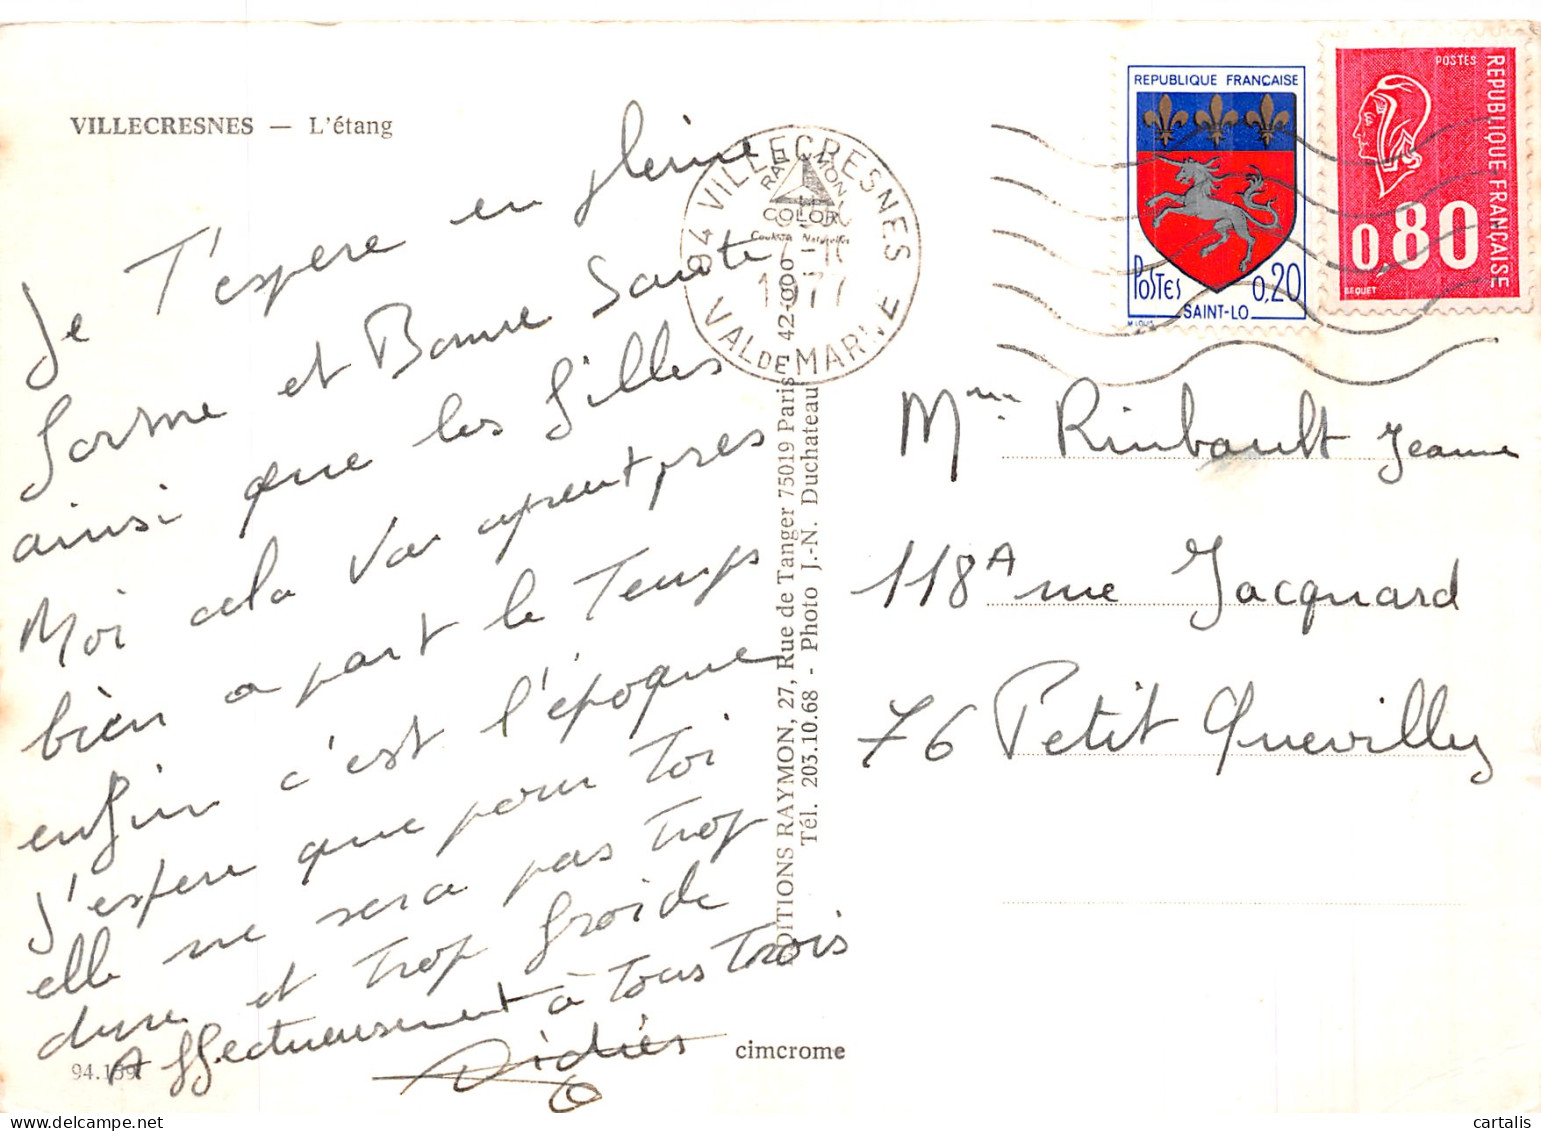 VILLECRESNES — L'étang
Je T'espere en pleine
forme et Bonne Sante
ainsi que les filles
Moi cela va apeutpres
bien a part le Temps
enfin c'est l'époque
J'espere que pour Toi
elle ne sera pas Trop
dure et trop froide
Affectueusement à Tous Trois
Didier
94.199
cimcrome
94 VILLECRESNES
VAL DE MARNE
1977
RAYMON
COLOR
Couleurs Naturelles
EDITIONS RAYMON, 27, Rue de Tanger 75019 Paris - 42-000
Tél. 203.10.68 - Photo J.-N. Duchateau
REPUBLIQUE FRANÇAISE
POSTES 0,20
SAINT-LO
M LOUIS
POSTES
REPUBLIQUE FRANÇAISE
0,80
BEQUET
Mme Rimbault Jeanne
118A rue Jacquard
76 Petit Quevilly
cartalis
delcampe.net